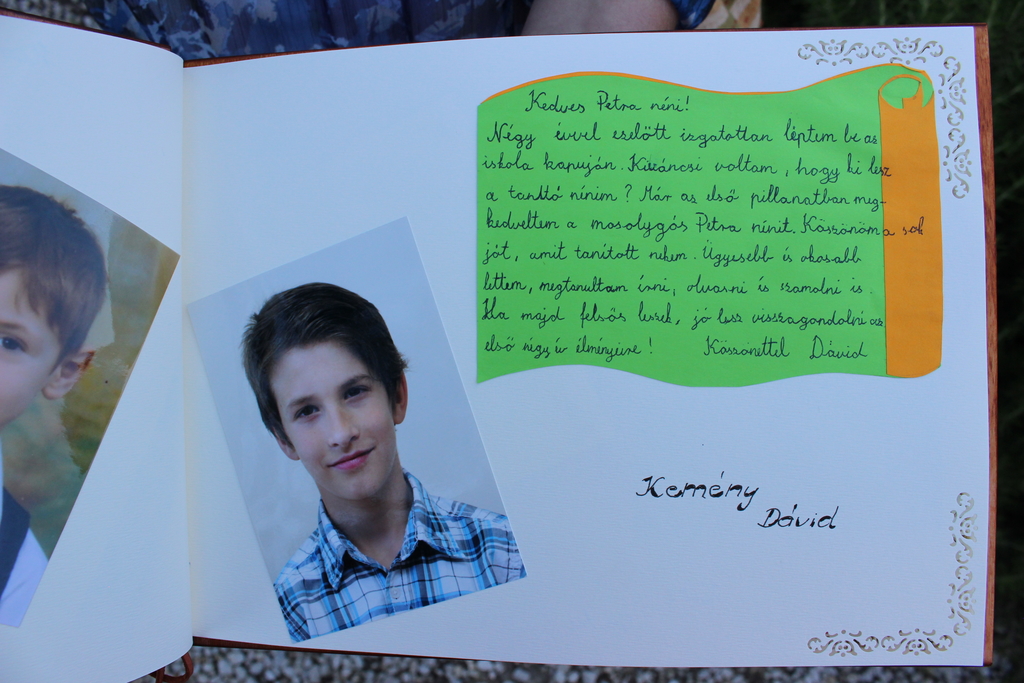 Kedves Petra néni!
Négy évvel ezelőtt izgatottan léptem be az
iskola kapuján. Kiváncsi voltam, hogy ki lesz
a tanító nínim? Már az első pillanatban meg-
kedveltem a mosolygós Petra nénit. Köszönöm a sok
jót, amit tanított nekem. Ügyesebb is okosabb
lettem, megtanultam írni, olvasni és számolni is.
Ha majd felsős leszek, jó lesz visszagondolni az
első négy év élményeire! Köszönettel Dávid
Kemény
Dávid